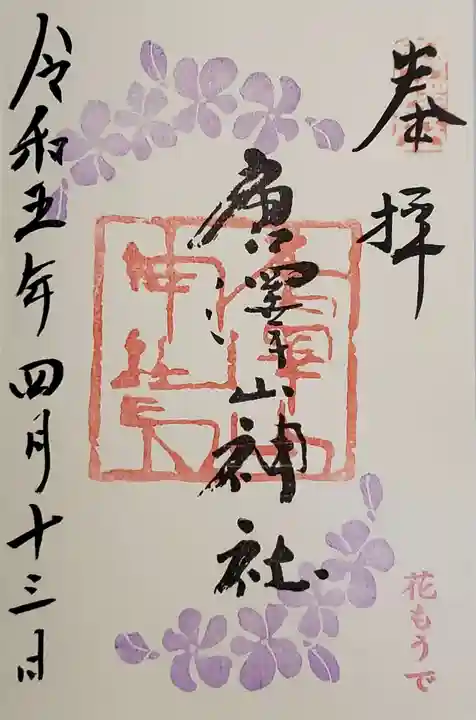 奉拝
唐澤山神社
令和五年四月十三日
花もうで